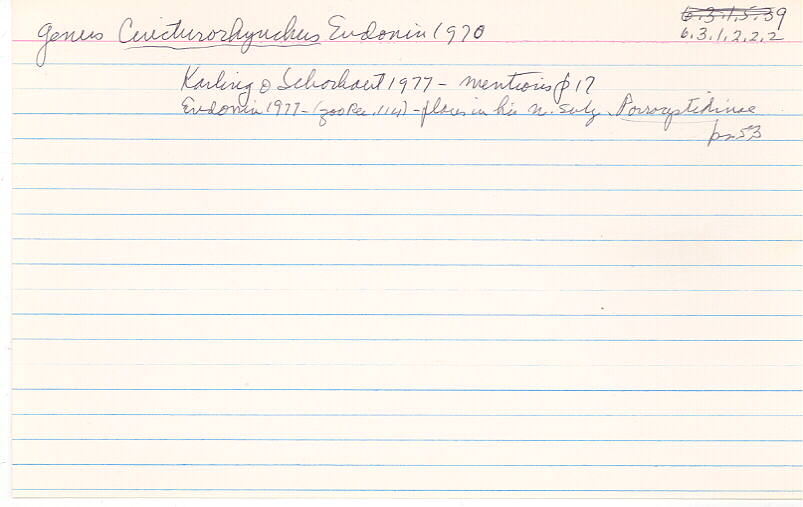 6.3.1.5.39
genus Cincturorhynchus Evdonin 1970
6.3.1.2.2.2
Karling & Schockaert 1977 - mentions p 17
Evdonin 1977 - (Zoo Rec. 114) - places in his n. subf. Porrocystidinae
p. 53